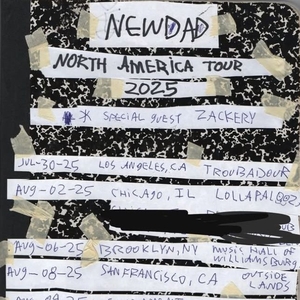 NEWDAD
NORTH AMERICA TOUR
2025
* SPECIAL GUEST ZACKERY
JUL-30-25 LOS ANGELES, CA TROUBADOUR
AUG-02-25 CHICAGO, IL LOLLAPALOOZ
AUG-06-25 BROOKLYN, NY MUSIC HALL OF
WILLIAMSBURG
AUG-08-25 SAN FRANCISCO, CA OUTSIDE
LANDS